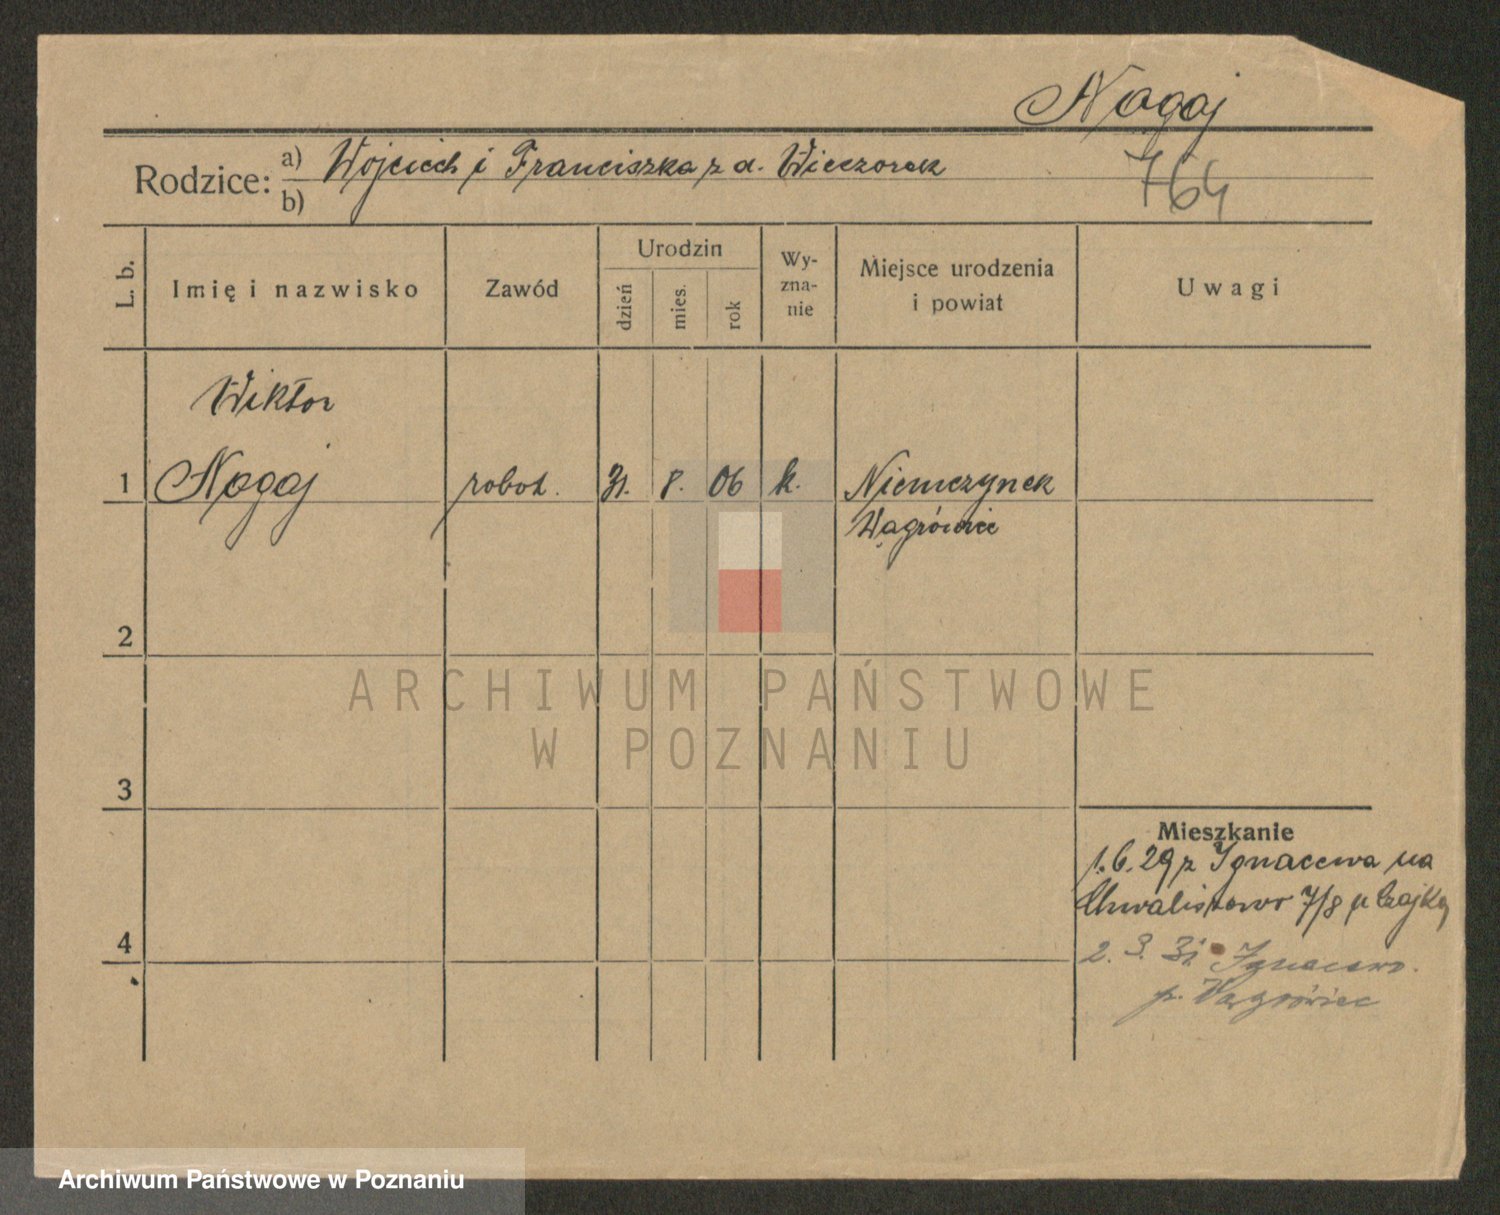 Nogaj
764
Rodzice: a) Wojciech i Franciszka z d. Wieczorek
b)
L. b. Imię i nazwisko Zawód Urodzin dzień mies. rok Wyzna-nie Miejsce urodzenia i powiat Uwagi
Wiktor
1 Nogaj robot. 31. 8. 06 k. Niemczynek
Wągrówiec
2
3
4
Mieszkanie
1.6.29 z Ignacewa na
Chwaliszewo 7/8 u Czajka
2. 3. 31 Ignacewo.
p. Wągrówiec
ARCHIWUM PAŃSTWOWE
W POZNANIU
Archiwum Państwowe w Poznaniu